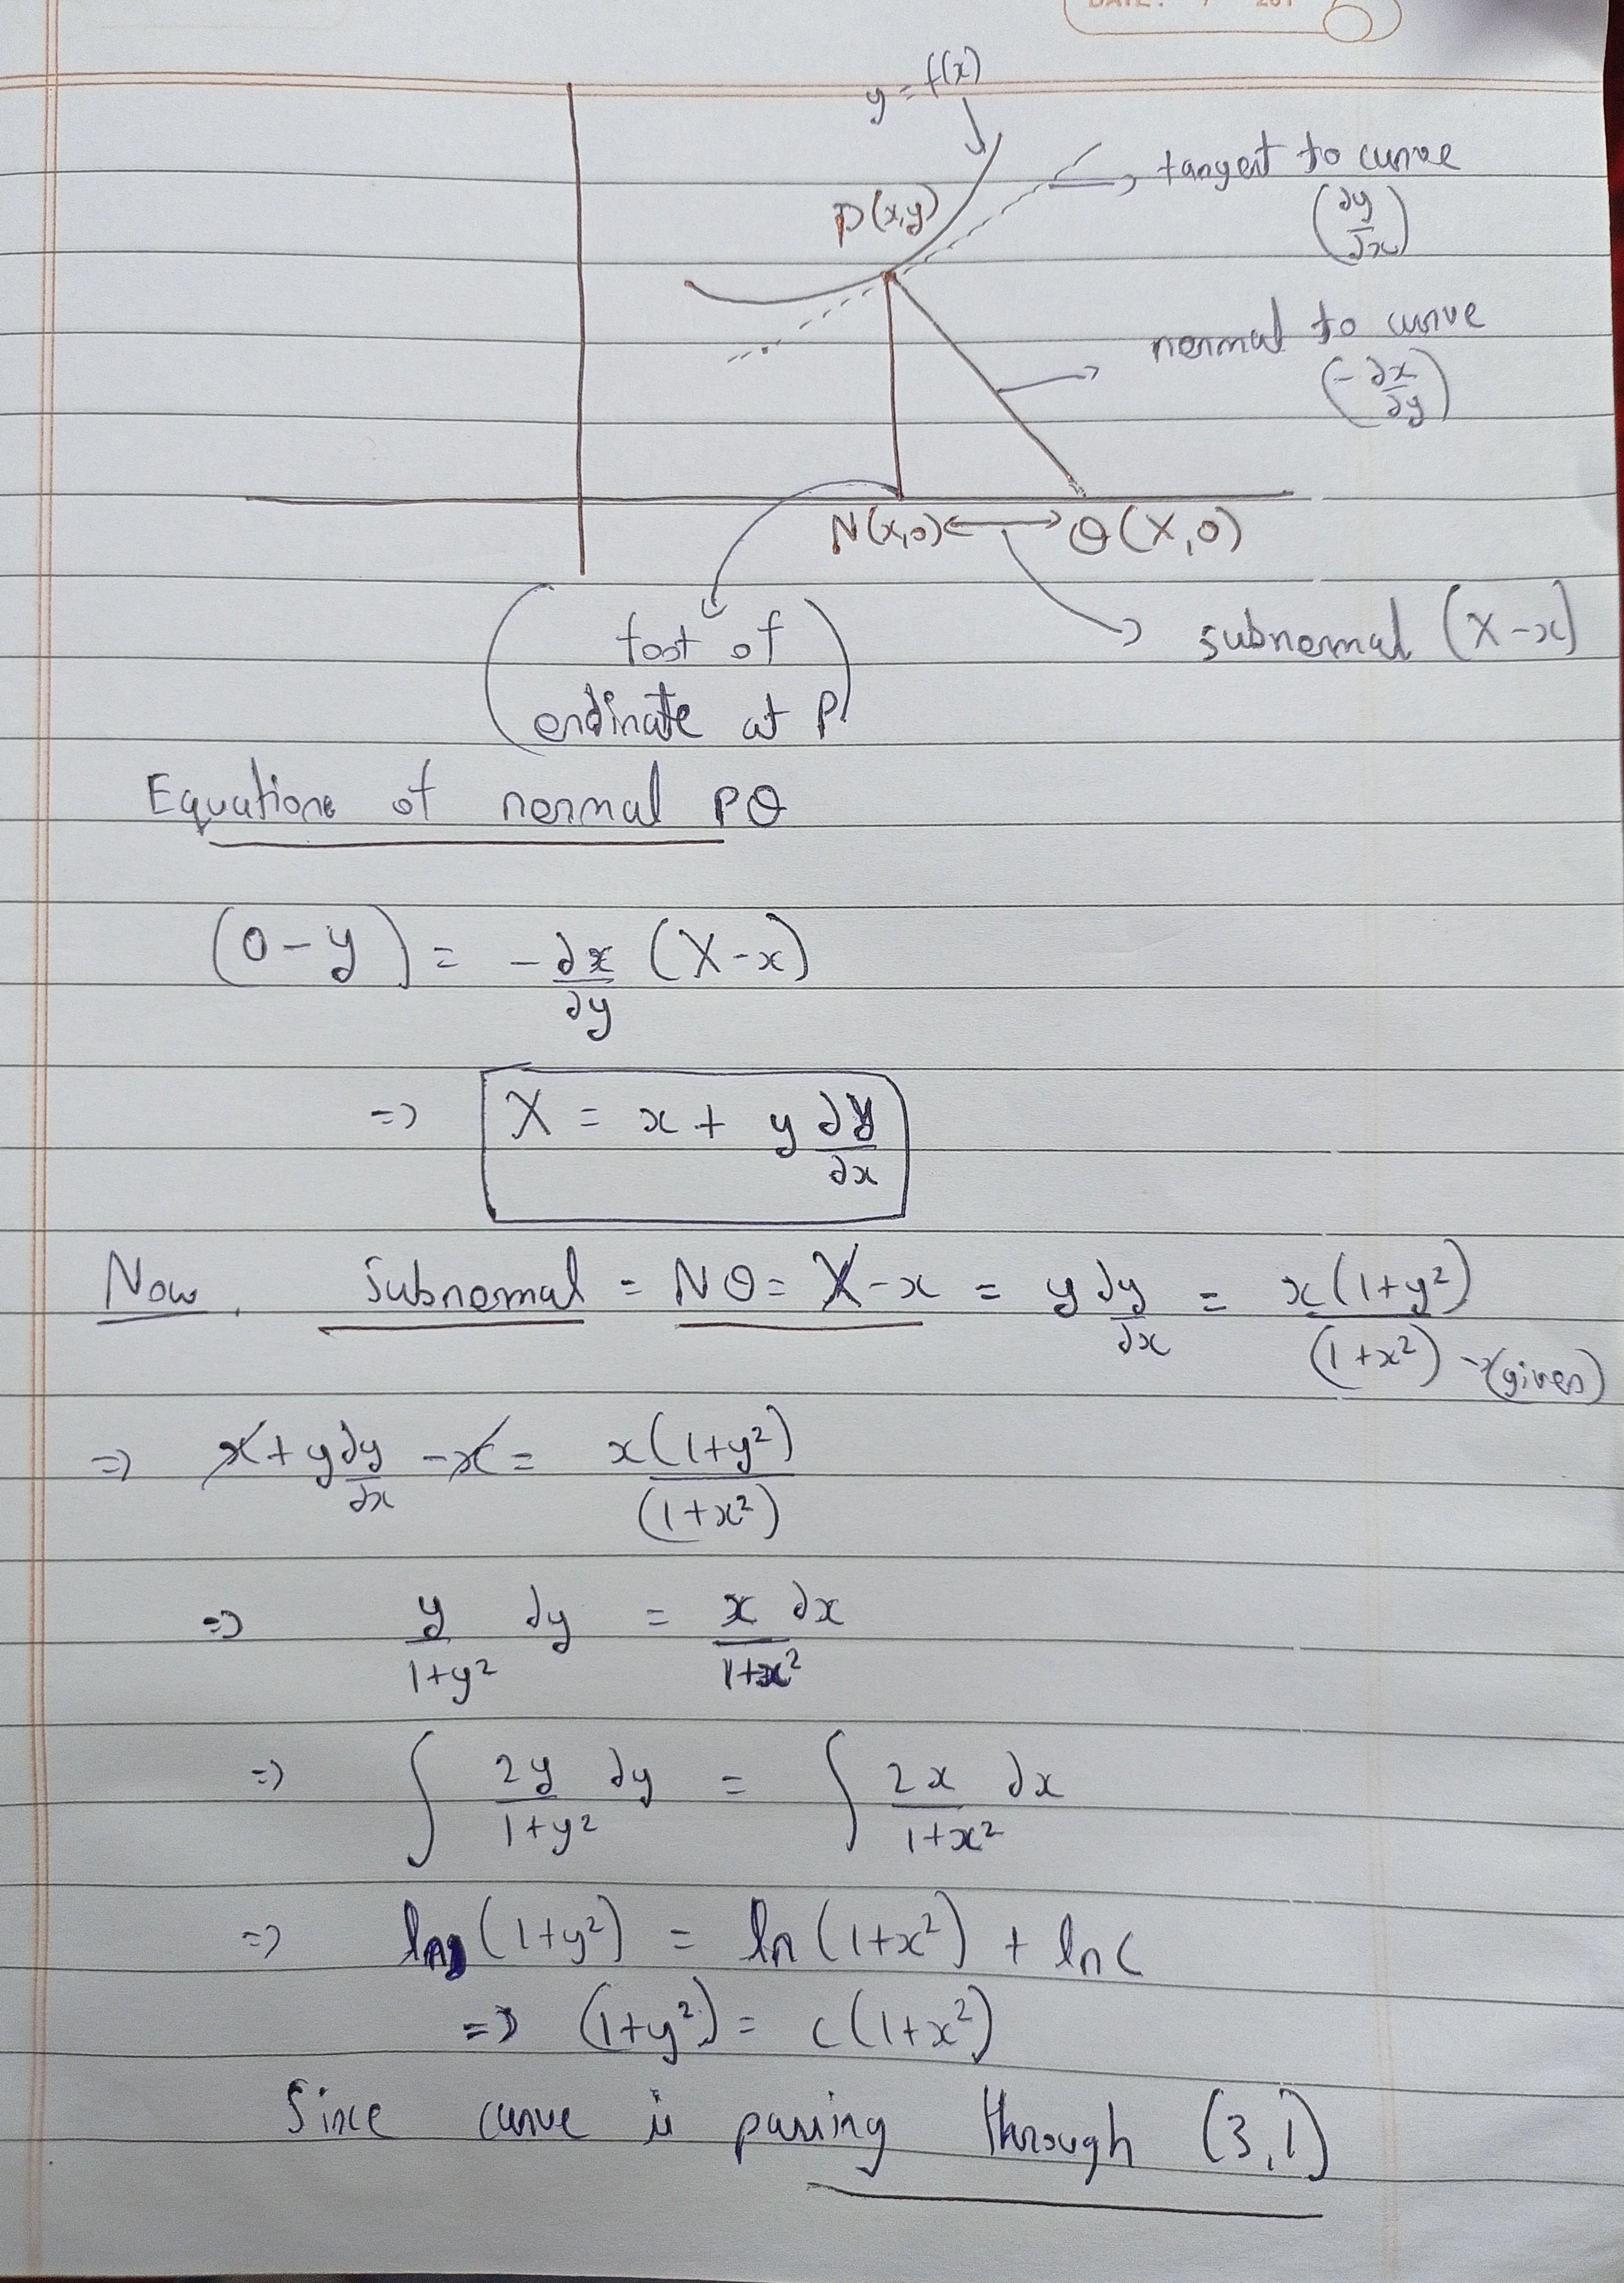 DATE: / 201
y = f(x)
P(x,y)
→ tangent to curve
(dy/dx)
→ normal to curve
(-dx/dy)
N(x,0) ↔ Q(X,0)
(foot of
ordinate at P)
→ subnormal (X-x)
Equation of normal PQ
(0-y) = -dx/dy (X-x)
=> X = x + y dy/dx
Now, Subnormal = NQ = X-x = y dy/dx = x(1+y²)/(1+x²) → (given)
=> x + y dy/dx - x = x(1+y²)/(1+x²)
=> y/(1+y²) dy = x dx/(1+x²)
=> ∫ 2y/(1+y²) dy = ∫ 2x/(1+x²) dx
=> ln(1+y²) = ln(1+x²) + ln c
=> (1+y²) = c(1+x²)
Since curve is passing through (3,1)